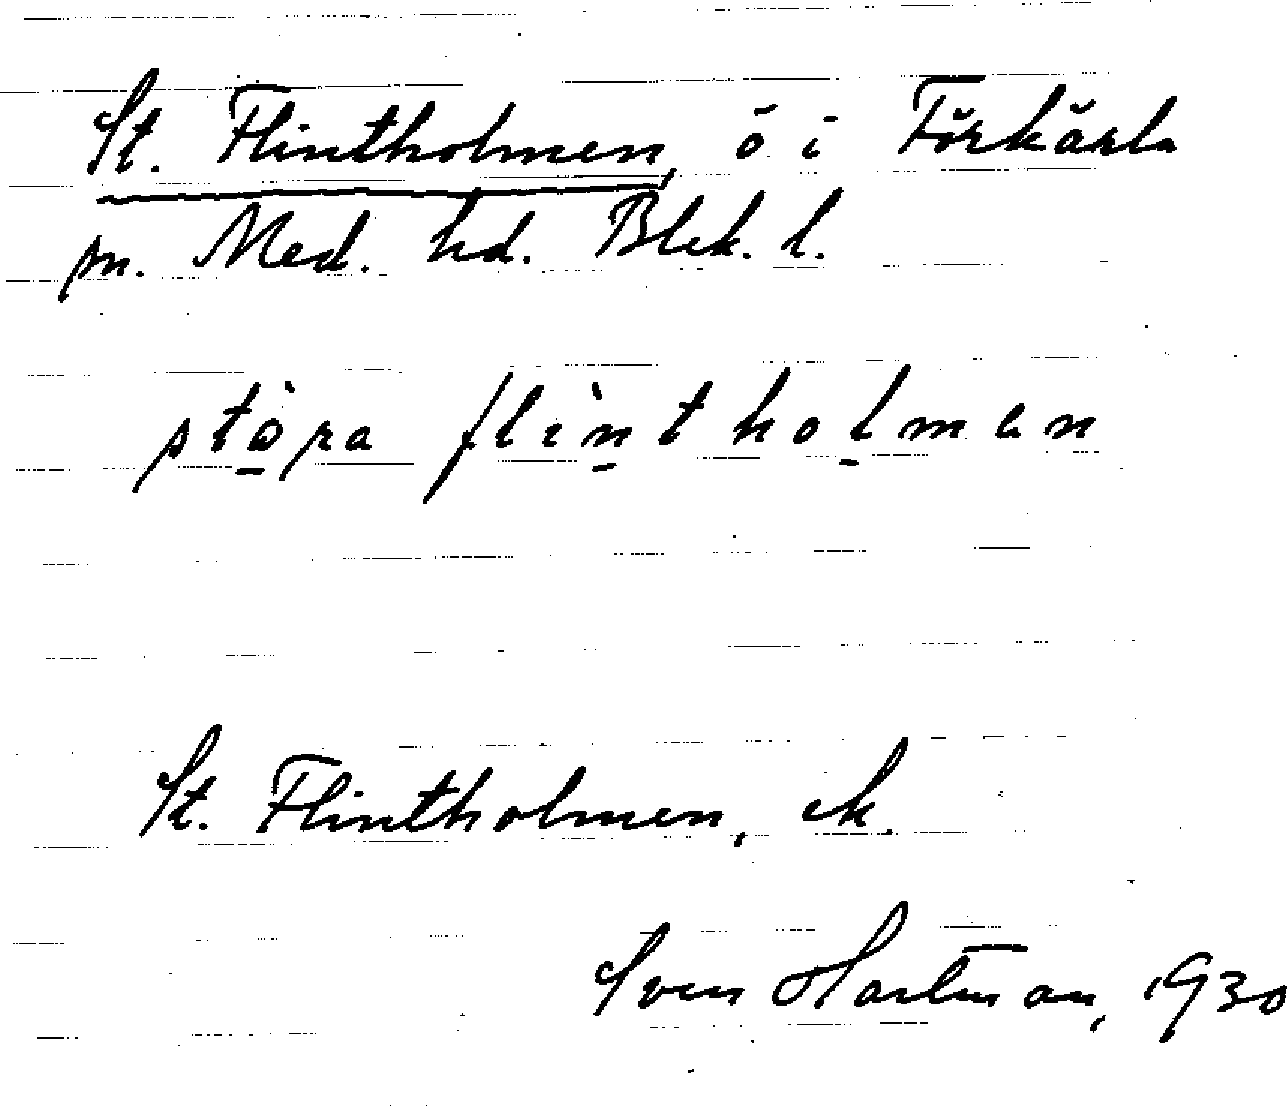 St. Flintholmen, ö i Förkärla
sn. Med. hd. Blek. l.
stò̱ra flìṉthoḻmen
St. Flintholmen, ek.
Sven Hartman, 1930